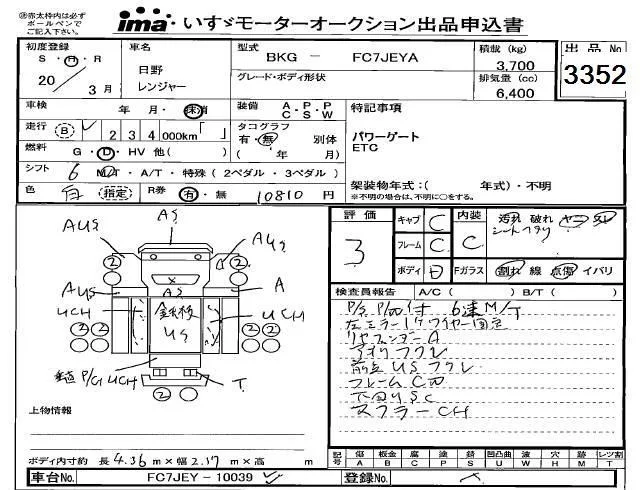 ※赤太枠内は必ず
ボールペンで
ご記入下さい。
ima いすゞモーターオークション出品申込書
初度登録 S・H・R 20 / 3月
車名 日野 レンジャー
型式 BKG - FC7JEYA
グレード・ボディ形状
積載 (kg) 3,700
排気量 (cc) 6,400
出品 No 3352
車検 年 月・抹消
装備 A・P・P C・S・W
特記事項
パワーゲート
ETC
走行 B 2 3 4 000km「 」
タコグラフ 有・無 別体 ( 年 月)
燃料 G・D・HV 他( )
シフト 6 M/T・A/T・特殊 (2ペダル・3ペダル)
架装物年式:( 年式)・不明
※不明の場合は、不明に○をする。
色 白 (指定) R券 有・無 10810 円
評価 3
キャブ C
フレーム C
ボディ D
内装 C
汚れ 破れ ヤニ スレ
Fガラス 割れ 線 点傷 イバリ
検査員報告 A/C ( ) B/T ( )
P/S P/W付 6速M/T
左ミラー1ケワイヤー固定
リヤフェンダーA
アオリフクレ
フレームC凹
下回りSC
マフラーCH
AS
AUS AUS
2 2
AUS AS A
UCH UCH
US
2 2 2 2
P/G UCH T
2
上物情報
ボディ内寸約 長 4.36 m×幅 2.17 m×高 m
記号 傷 A 板金 B 腐 C 塗 P 錆 S 凹凸曲 U 波 W 穴 H 跡 M レンズ割 T
車台No. FC7JEY-10039
登録No.